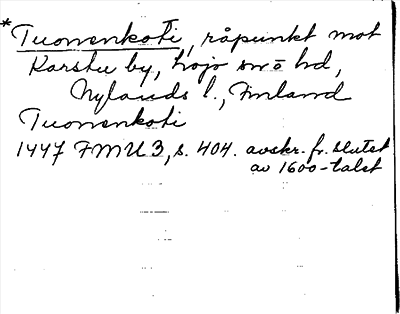 *Tuonenkoti, råpunkt mot
Karstu by, Lojo sn o hd,
Nylands l., Finland
Tuonenkoti
1447 FMU 3, s. 404. avskr. fr. slutet
av 1600-talet